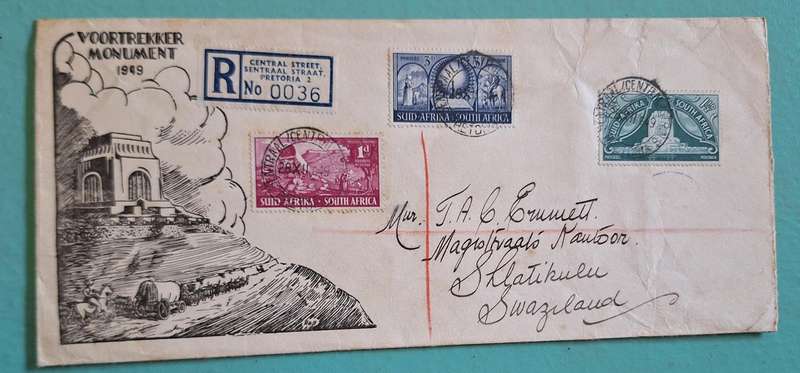 VOORTREKKER
MONUMENT
1949
R
CENTRAL STREET,
SENTRAAL STRAAT,
PRETORIA 2
No 0036
3D
SUID AFRIKA SOUTH AFRICA
1½D
SUID-AFRIKA SOUTH AFRICA
POSSEEL POSTAGE
1D
SUID AFRIKA · SOUTH AFRICA
Mnr. T. A. C. Emmett.
Magistraats Kantoor.
Shlatikulu
Swaziland